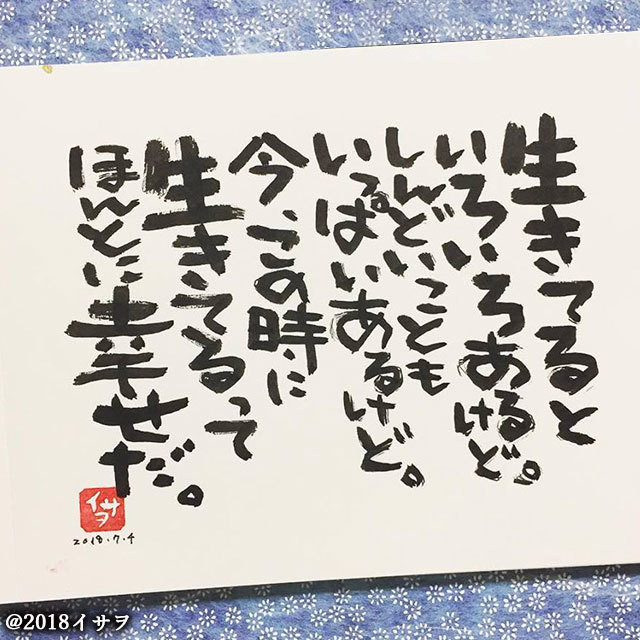 生きてると
いろいろあるけど。
しんどいことも
いっぱいあるけど。
今、この時に
生きてるって
ほんとに幸せだ。
イサヲ
2018.7.4
@2018イサヲ